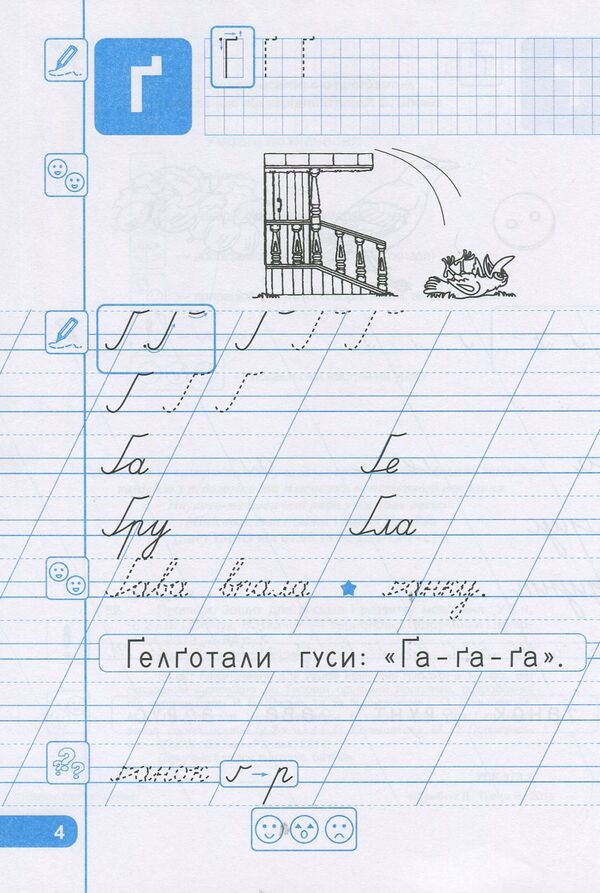 Ґ Ґ Ґ Ґ
Ґ Ґ Ґ Ґ Ґ
Ґ Ґ Ґ
Ґа Ґе
Ґру Ґла
Ґава впала ★ ґанку.
Ґелґотали гуси: «Ґа-ґа-ґа».
ґанок ґ → р
4